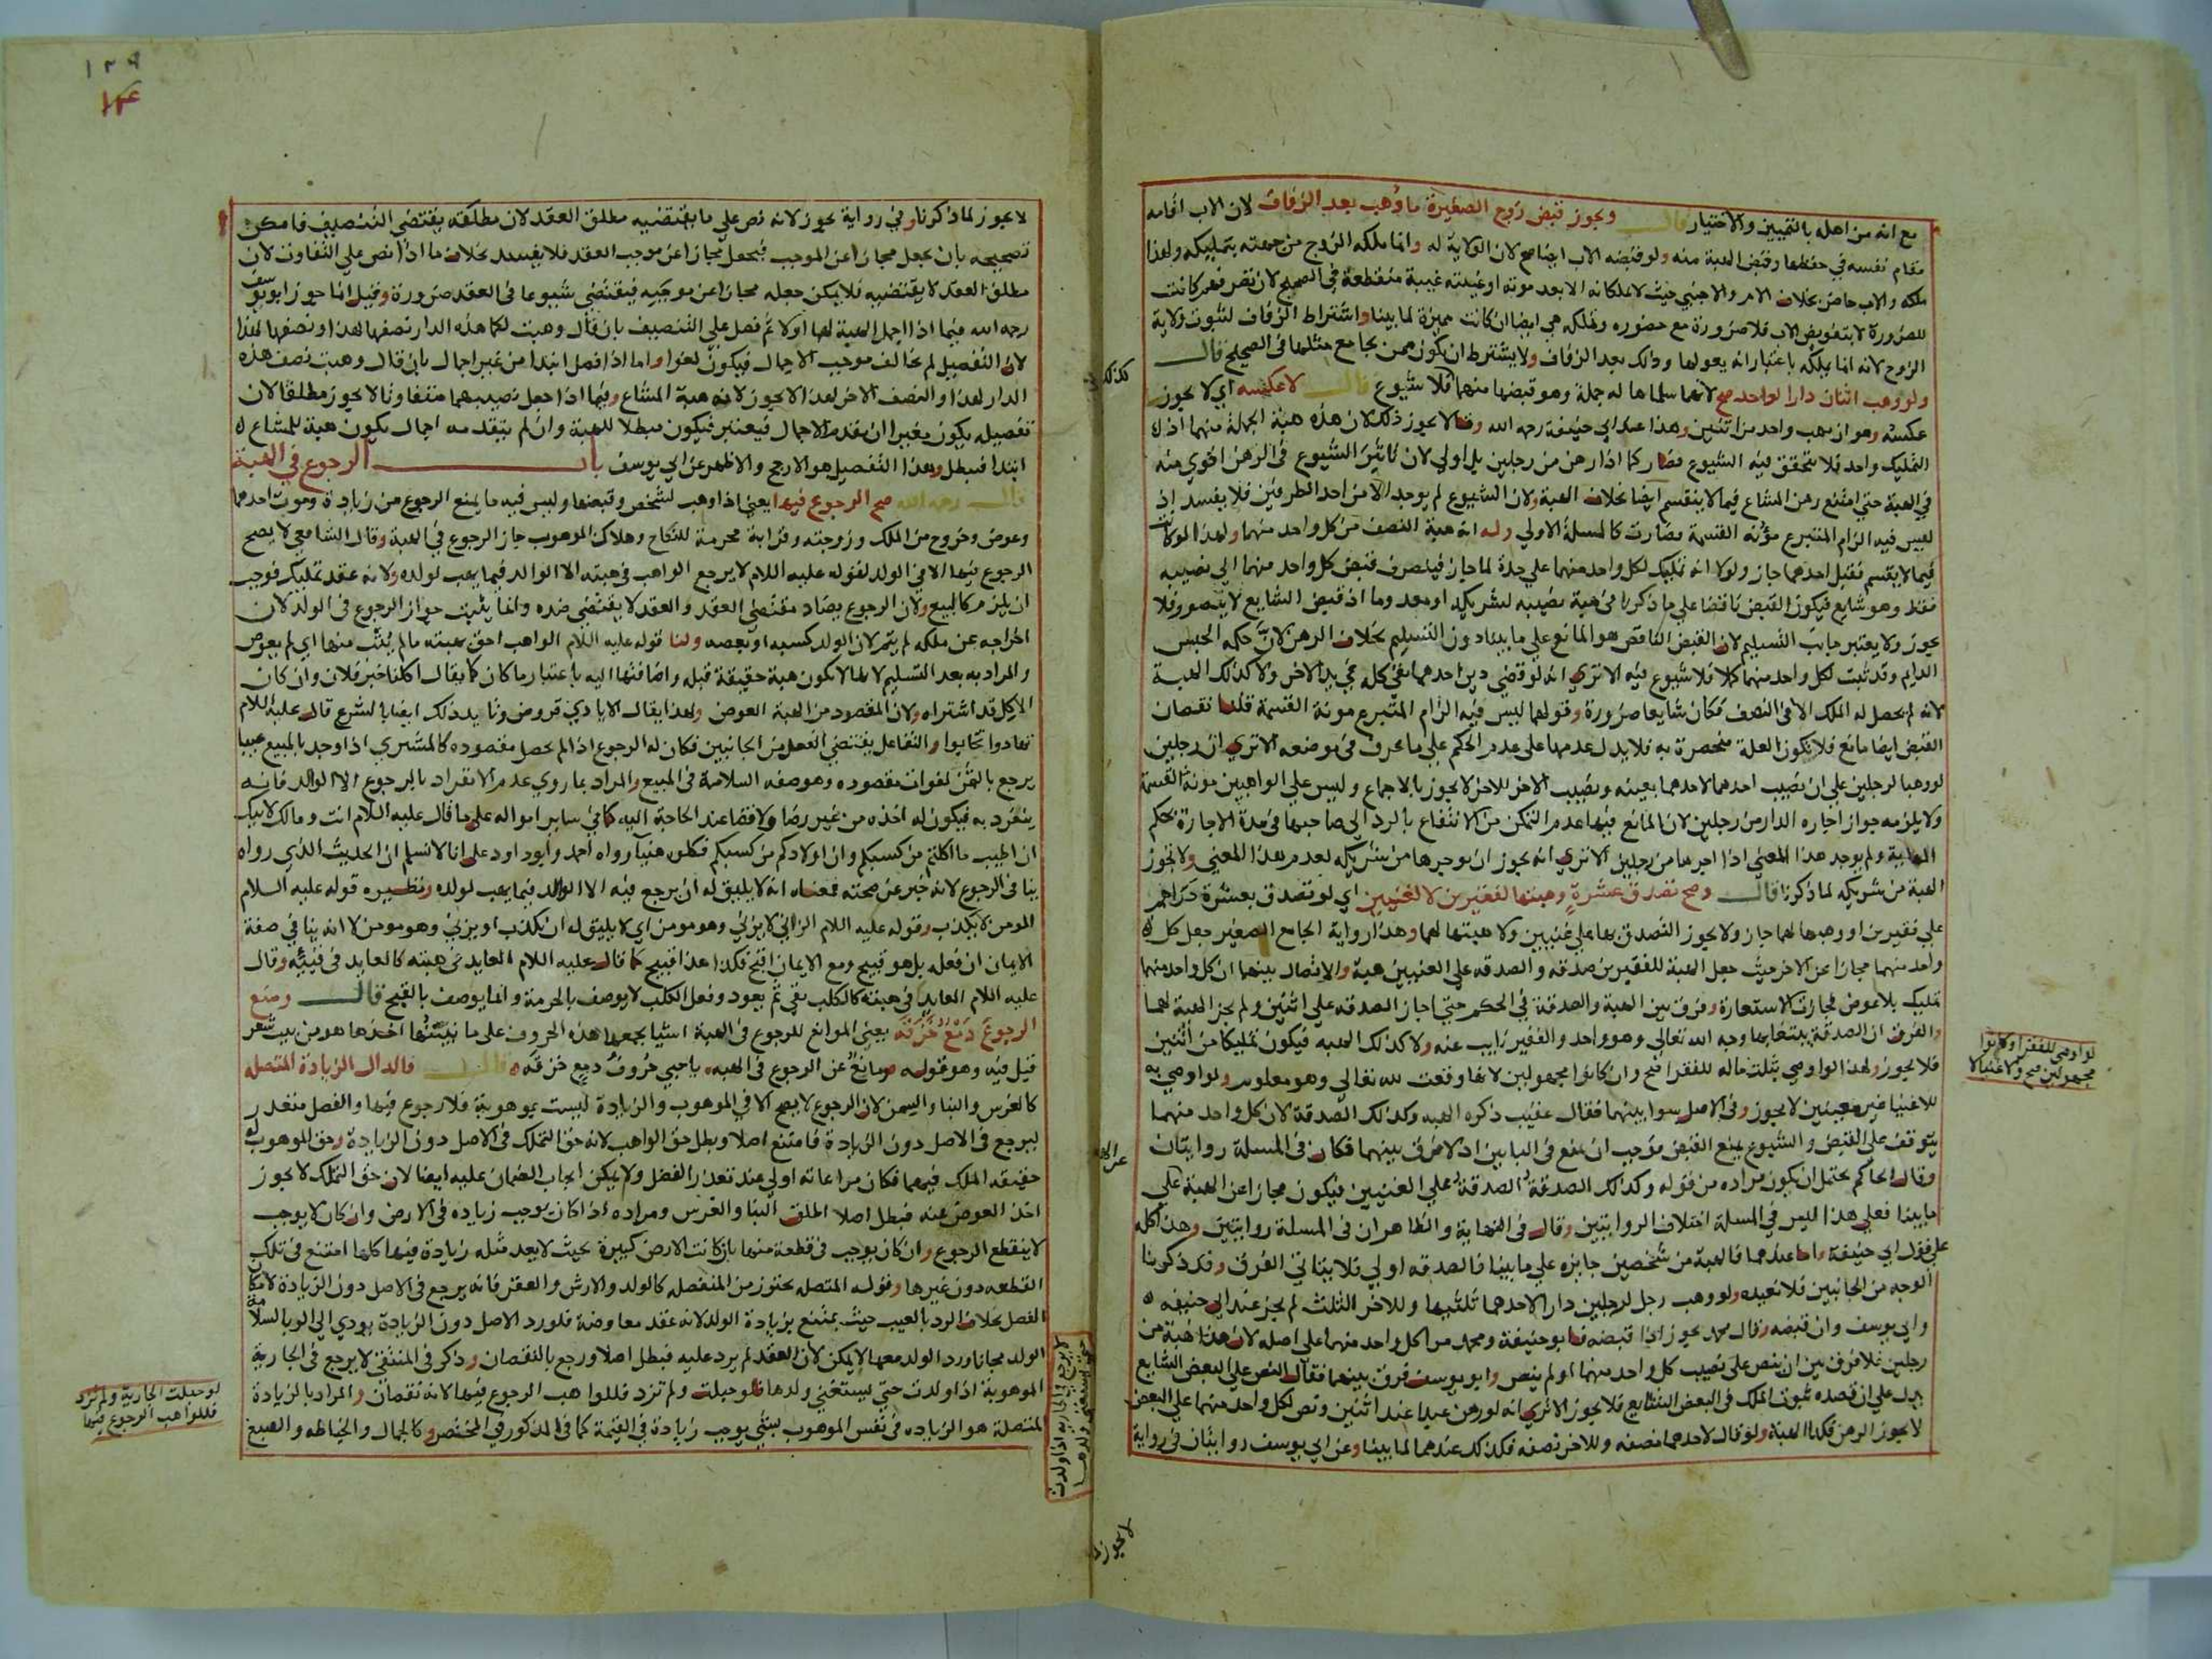 مع انه من اهله بالتمييز والاختيار قال ويجوز قبض زوج الصغيرة ما وهب بعد الزفاف لان الاب اقامه
مقام نفسه في حفظها وقبض الهبة منه ولو قبضه الاب ايضا صح لان الولاية له وانما ملكه الزوج من جهته بتمليكه ولهذا
ملكه والاب حاضر بخلاف الام والاجنبي حيث لا يملكانه الا بعد موته او غيبته غيبة منقطعة في الصحيح لان تصرفهم كانت
للضرورة لا بتفويض الاب فلا ضرورة مع حضوره وتملكه هي ايضا ان كانت مميزة لما بينا واشتراط الزفاف لثبوت ولاية
الزوج لانه انما يملكه باعتبار انه يعولها وذلك بعد الزفاف ولا يشترط ان يكون ممن يجامع مثلها في الصحيح قال
ولو وهب اثنان دارا لواحد صح لانهما سلماها له جملة وهو قبضها منهما فلا شيوع قال لا عكسه اي لا يجوز
عكسه وهو ان يهب واحد من اثنين وهذا عند ابي حنيفة رحمه الله وقالا يجوز ذلك لان هذه هبة الجملة منهما اذ
التمليك واحد فلا يتحقق فيه الشيوع فصار كما اذا رهن من رجلين بل اولى لان تاثير الشيوع في الرهن اقوي منه
في الهبة حتى امتنع رهن المشاع فيما لا ينقسم ايضا بخلاف الهبة ولان الشيوع لم يوجد الا من احد الطرفين فلا يفسد اذ
ليس فيه الزام المتبرع مؤنة القسمة فصارت كالمسلة الاولي وله انه هبة النصف من كل واحد منهما ولهذا لو كانت
فيما لا يقسم فقبل احدهما جاز ولولا انه تمليك لكل واحد منهما على حدة لما جاز فينصرف قبض كل واحد منهما الى نصيبه
فقط وهو شايع فيكون القبض ناقصا على ما ذكرنا في هبة نصيبه لشريكه
يجوز ولا يعتبر جانب التسليم لان القبض الناقص هو المانع على ما بينا دون التسليم بخلاف الرهن لان حكمه الحبس
الدايم وقد ثبت لكل واحد منهما كملا فلا شيوع فيه الا ترى انه لو قضى دين احدهما بقي كله في يد الاخر ولا كذلك الهبة
لانه لم يحصل له الملك الا في النصف فكان شايعا ضرورة وقولهما ليس فيه الزام المتبرع مونة القسمة قلنا نقصان
القبض ايضا مانع فلا تكون العلة منحصرة به فلا يدل عدمها على عدم الحكم على ما عرف في موضعه الا تري ان رجلين
لو وهبا لرجلين على ان نصيب احدهما لاحدهما بعينه ونصيب الاخر للاخر لا يجوز بالاجماع وليس علي الواهبين مونة القسمة
ولا يلزمه جواز اجارة الدار من رجلين لان المانع فيها عدم التمكن من الانتفاع بالرد الى صاحبها في مدة الاجارة بحكم
المهاياة ولم يوجد هذا المعني اذا اجرها من رجلين الا تري انه يجوز ان يوجرها من شريكه لعدم هذا المعني ولا تجوز
الهبة من شريكه لما ذكرنا قال وصح تصدق عشرة وهبتها لفقيرين لا لغنيين اي لو تصدق بعشرة دراهم
على فقيرين او وهبها لهما جاز ولا يجوز التصدق بها على غنيين ولا هبتها لهما وهذا رواية الجامع الصغير جعل كل
واحد منهما مجازا عن الاخر حيث جعل الهبة للفقيرين صدقه والصدقه علي الغنيين هبة والاتصال بينهما ان كل واحد منهما
تمليك بلا عوض فجازت الاستعارة وفرق بين الهبة والصدقة في الحكم حتى اجاز الصدقه على اثنين ولم يجز الهبة لهما
والفرق ان الصدقة يبتغا بها وجه الله تعالى وهو واحد والفقير نايب عنه ولا كذلك الهبه فيكون تمليكا من اثنين
فلا يجوز ولهذا لو اوصي بثلث ماله للفقرا صح وان كانوا مجهولين لانها وقعت لله تعالى وهو معلوم ولو اوصي به
للاغنيا غير معينين لا يجوز وفي الاصل سوا بينهما فقال عقيب ذكره الهبه وكذلك الصدقة لان كل واحد منهما
يتوقف على القبض والشيوع يمنع القبض فوجب ان يمنع في البابين اذ لا فرق بينهما فكان في المسلة روايتان
وقال الحاكم يحتمل ان يكون مراده من قوله وكذلك الصدقة الصدقة على الغنيين فيكون مجازا عن الهبة على
ما بينا فعلى هذا ليس في المسلة اختلاف الروايتين وقال في النهاية والظاهر ان في المسلة روايتين وهذا كله
على قول ابي حنيفة واما عندهما فالهبة من شخصين جايزه على ما بينا فالصدقه اولي فلا يتاتي الفرق وقد ذكرنا
الوجه من الجانبين فلا نعيده ولو وهب رجل لرجلين دارا لاحدهما ثلثيها وللاخر الثلث لم يجز عند ابي حنيفه
وابي يوسف وان قبضه وقال محمد يجوز اذا قبضه فابو حنيفة ومحمد مرا كل واحد منهما على اصله لان هذا هبة من
رجلين فلا فرق بين ان ينص على نصيب كل واحد منهما او لم ينص وابو يوسف فرق بينهما فقال النص على البعض الشايع
يدل على ان قصده ثبوت الملك في البعض الشايع فلا يجوز الا تري انه لو رهن عبدا عند اثنين ونص لكل واحد منهما على البعض
لا يجوز الرهن فكذا الهبة ولو قال لاحدهما نصفه وللاخر نصفه فكذلك عندهما لما بينا وعن ابي يوسف روايتان في رواية
لو اوصي للفقرا وكانوا
مجهولين صح ولا غنيا لا
لا يجوز
١٢٩
لا يجوز لما ذكرنا وفي رواية يجوز لانه نص علي ما يقتضيه مطلق العقد لان مطلقه يقتضي التنصيف فامكن
تصحيحه بان يجعل مجازا عن الموجب فيجعل مجازا عن موجب العقد فلا يفسد بخلاف ما اذا نص على التفاوت لان
مطلق العقد لا يقتضيه فلا يمكن جعله مجازا عن موجبه فيقتضي شيوعا في العقد ضرورة وقيل انما جوز ابو يوسف
رحمه الله فيما اذا اجمل الهبة لهما اولا ثم فصل علي التنصيف بان قال وهبت لكما هذه الدار نصفها لهذا ونصفها لهذا
لان التفصيل لم يخالف موجب الاجمال فيكون لغوا واما اذا فصل ابتدا من غير اجمال بان قال وهبت نصف هذه
الدار لهذا والنصف الاخر لهذا لا يجوز لانه هبة المشاع وفيما اذا جعل نصيبهما متفاوتا لا يجوز مطلقا لان
تفصيله يكون مغيرا ان تقدم الاجمال فيعتبر فيكون مبطلا للهبة وان لم يتقدمه اجمال يكون هبة للمشاع
ابتدا فيبطل وهذا التفصيل هو الارجح والاظهر عن ابي يوسف باب الرجوع في الهبة
قال رحمه الله صح الرجوع فيها يعني اذا وهب لشخص وقبضها وليس فيه ما يمنع الرجوع من زيادة وموت احدهما
وعوض وخروج من الملك وزوجته وقرابة محرمة للنكاح وهلاك الموهوب جاز الرجوع في الهبة وقال الشافعي لا يصح
الرجوع فيها الا في الولد لقوله عليه السلام لا يرجع الواهب في هبته الا الوالد فيما يهب لولده ولانه عقد تمليك فوجب
ان يلزم كالبيع ولان الرجوع يضاد مقتضي العقد والعقد لا يقتضي ضده وانما يثبت جواز الرجوع في الولد لان
اخراجه عن ملكه لم يتم لان الولد كسبه او بعضه ولنا قوله عليه السلام الواهب احق بهبته ما لم يثب منها اي لم يعوض
والمراد به بعد التسليم لانها لا تكون هبة حقيقة قبله واضافتها اليه باعتبار ما كان كما يقال اكلنا خبز فلان وان كان
الاكل قد اشتراه ولان المقصود من الهبة العوض ولهذا يقال الايادي قروض وتايد ذلك ايضا بالشرع قال عليه السلام
تهادوا تحابوا والتفاعل يقتضي الفعل من الجانبين فكان له الرجوع اذا لم يحصل مقصوده كالمشتري اذا وجد بالمبيع عيبا
يرجع بالثمن لفوات مقصوده وهو صفه السلامة في المبيع والمراد بما روي عدم الانفراد بالرجوع الا الوالد فانه
ينفرد به فيكون له اخذه من غير رضا ولا قضا عند الحاجة اليه كما في ساير امواله على ما قال عليه السلام انت ومالك لابيك
ان اطيب ما اكلتم من كسبكم وان اولادكم من كسبكم فكلوه هنيا رواه احمد وابو داود على انا لا نسلم ان الحديث الذي رواه
ينافي الرجوع لانه خبر عن صحته فمعناه انه لا يليق له ان يرجع فيه الا الوالد فيما يهب لولده ونظيره قوله عليه السلام
المومن لا يكذب وقوله عليه السلام الزاني لا يزني وهو مومن اي لا يليق له ان يكذب او يزني وهو مومن لا انه ينافي صفة
الايمان ان فعله بل هو قبيح ومع الايمان اقبح فكذا هذا قبيح كما قال عليه السلام العايد في هبته كالعايد في قيئه وقال
عليه السلام العايد في هبته كالكلب يقي ثم يعود وفعل الكلب لا يوصف بالحرمة وانما يوصف بالقبح قال ومنع
الرجوع دمع خزقه يعني الموانع للرجوع في الهبة اشيا يجمعها هذه الحروف على ما نبينها اخذها هو من بيت شعر
قيل فيه وهو قوله ومانع عن الرجوع في الهبه يا حبي حروف دمع خزقه قال فالدال الزيادة المتصله
كالغرس والبنا والسمن لان الرجوع لا يصح الا في الموهوب والزيادة ليست بموهوبة فلا رجوع فيها والفصل متعذر
ليرجع في الاصل دون الزيادة فامتنع اصلا وبطل حق الواهب لانه حق التملك في الاصل دون الزيادة وحق الموهوب له
حقيقه الملك فيهما فكان مراعاته اولى عند تعذر الفصل ولا يمكن ايجاب الضمان عليه ايضا لان حق التملك لا يجوز
اخذ العوض عنه فبطل اصلا اطلق البنا والغرس ومراده اذا كان يوجب زياده في الارض وان كان لا يوجب
لا ينقطع الرجوع وان كان يوجب في قطعة منها بان كانت الارض كبيرة بحيث لا يعد مثله زيادة فيها كلها امتنع في تلك
القطعه دون غيرها وقوله المتصله يحترز من المنفصله كالولد والارش والعقر فانه يرجع في الاصل دون الزيادة لامكان
الفصل بخلاف الرد بالعيب حيث يمتنع بزيادة الولد لانه عقد معاوضة فلو رد الاصل دون الزيادة يودي الى الربا لسلامة
الولد مجانا ورد الولد معها لا يمكن لان العقد لم يرد عليه فبطل اصلا ورجع بالنقصان وذكر في المنتقى لا يرجع في الجارية
الموهوبة اذا ولدت حتى يستغني ولدها فلو حبلت ولم تزد فللواهب الرجوع فيها لانه نقصان والمراد بالزيادة
المتصلة هو الزياده في نفس الموهوب بشي يوجب زيادة في القيمة كما في المذكور في المختصر وكالجمال والخياطه والصبغ
لو حبلت الجارية ولم تزد
فللواهب الرجوع فيها
لا يرجع في الجارية اذا ولدت
حتى يستغني ولدها